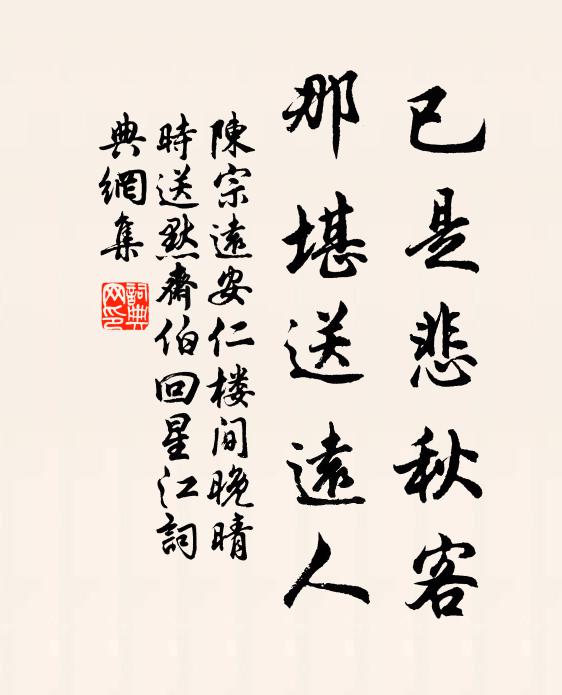 已是悲秋客
那堪送遠人
陳宗遠安仁楼间晚晴
時送默齋伯回星江詞
典網集
詞典网印